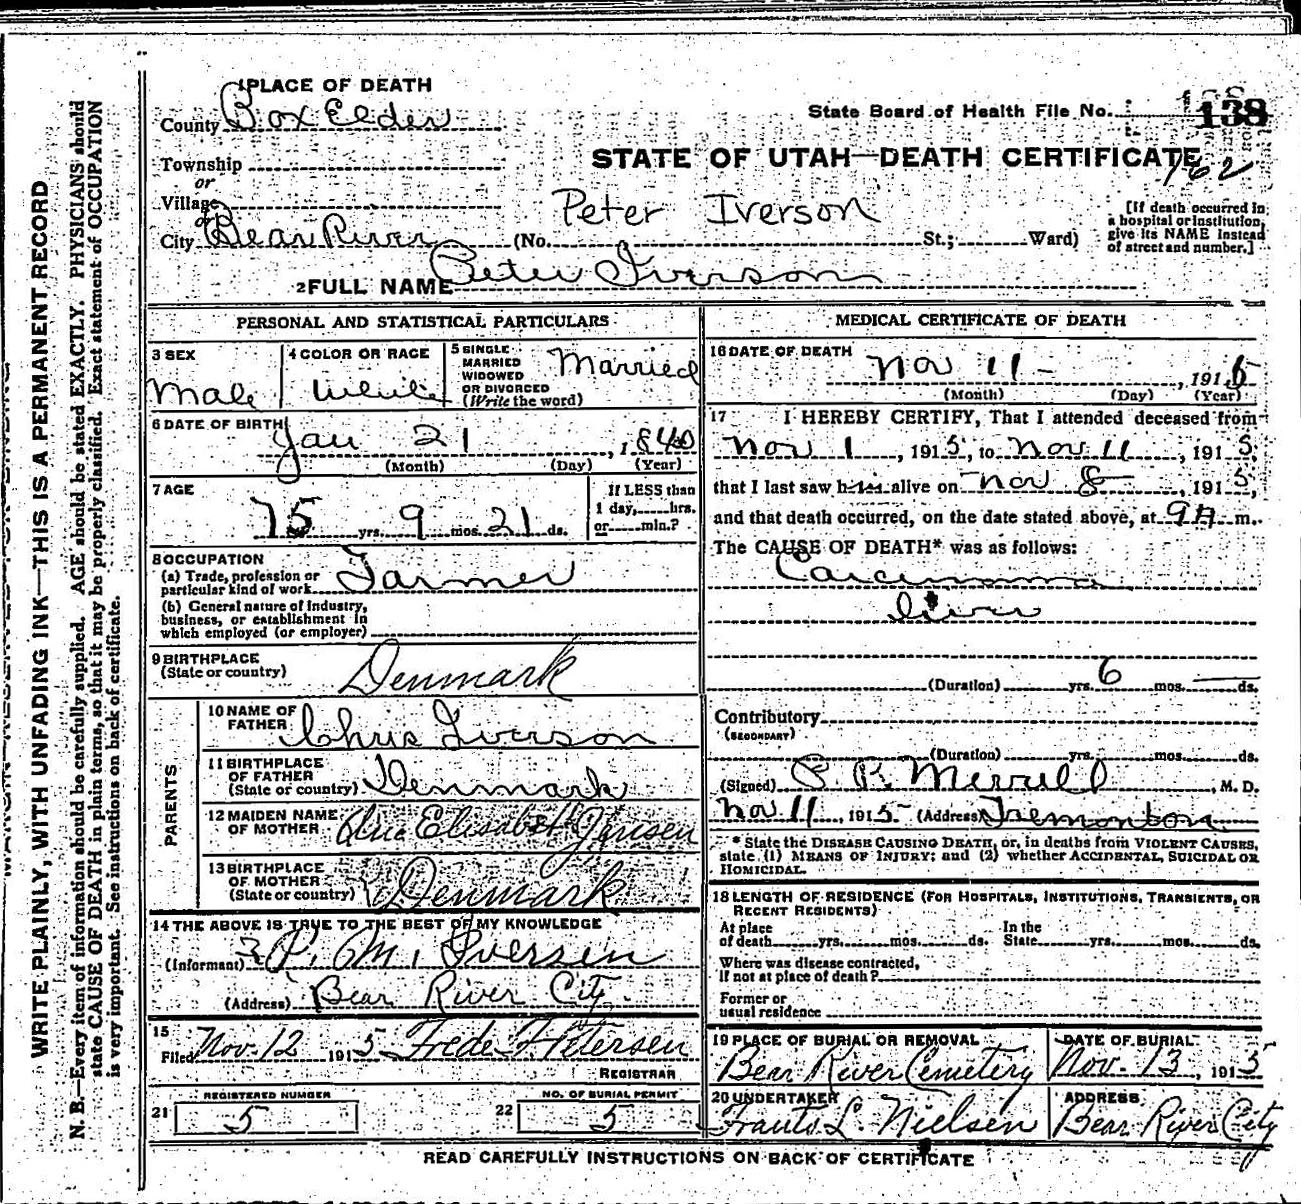 1 PLACE OF DEATH
County Box Elder
State Board of Health File No. 138
Township
or
Village
or
City Bear River
STATE OF UTAH—DEATH CERTIFICATE
162
Peter Iverson
(No. St.; Ward)
[If death occurred in a hospital or institution, give its NAME instead of street and number.]
2 FULL NAME Peter Iverson
PERSONAL AND STATISTICAL PARTICULARS
3 SEX
Male
4 COLOR OR RACE
White
5 SINGLE MARRIED WIDOWED OR DIVORCED (Write the word)
Married
6 DATE OF BIRTH
Jan 21, 1840
(Month) (Day) (Year)
7 AGE
75 yrs. 9 mos. 21 ds.
If LESS than 1 day, hrs. or min.?
8 OCCUPATION
(a) Trade, profession or particular kind of work Farmer
(b) General nature of industry, business, or establishment in which employed (or employer)
9 BIRTHPLACE
(State or country) Denmark
PARENTS
10 NAME OF FATHER Chris Iverson
11 BIRTHPLACE OF FATHER (State or country) Denmark
12 MAIDEN NAME OF MOTHER Ane Elisabeth Jansen
13 BIRTHPLACE OF MOTHER (State or country) Denmark
14 THE ABOVE IS TRUE TO THE BEST OF MY KNOWLEDGE
(Informant) P. M. Iversen
(Address) Bear River City
15
Filed Nov. 12 1915 Frede F. Petersen
REGISTRAR
REGISTERED NUMBER
21 5
NO. OF BURIAL PERMIT
22 5
MEDICAL CERTIFICATE OF DEATH
16 DATE OF DEATH
Nov 11 - , 1915
(Month) (Day) (Year)
17 I HEREBY CERTIFY, That I attended deceased from
Nov 1, 1915, to Nov 11, 1915,
that I last saw him alive on Nov 8, 1915,
and that death occurred, on the date stated above, at 9 A m.
The CAUSE OF DEATH* was as follows:
Carcinoma
liver
(Duration) yrs. 6 mos. ds.
Contributory
(SECONDARY)
(Duration) yrs. mos. ds.
(Signed) Merrill, M. D.
Nov 11, 1915 (Address) Tremonton
* State the DISEASE CAUSING DEATH, or, in deaths from VIOLENT CAUSES,
state (1) MEANS OF INJURY; and (2) whether ACCIDENTAL, SUICIDAL OR
HOMICIDAL.
18 LENGTH OF RESIDENCE (FOR HOSPITALS, INSTITUTIONS, TRANSIENTS, OR
RECENT RESIDENTS)
At place of death yrs. mos. ds. In the State yrs. mos. ds.
Where was disease contracted,
if not at place of death?
Former or
usual residence
19 PLACE OF BURIAL OR REMOVAL
Bear River Cemetery
DATE OF BURIAL
Nov. 13, 1915
20 UNDERTAKER
Frants L. Nielsen
ADDRESS
Bear River City
READ CAREFULLY INSTRUCTIONS ON BACK OF CERTIFICATE
WRITE PLAINLY, WITH UNFADING INK—THIS IS A PERMANENT RECORD
N. B.—Every item of information should be carefully supplied. AGE should be stated EXACTLY. PHYSICIANS should
state CAUSE OF DEATH in plain terms, so that it may be properly classified. Exact statement of OCCUPATION
is very important. See instructions on back of certificate.